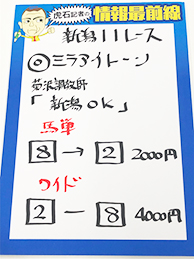 虎石記者の
情報最前線
新潟11レース
◎ミラアイトーン
菊沢調教師
「新潟OK」
馬単
8→2 2000円
ワイド
2-8 4000円